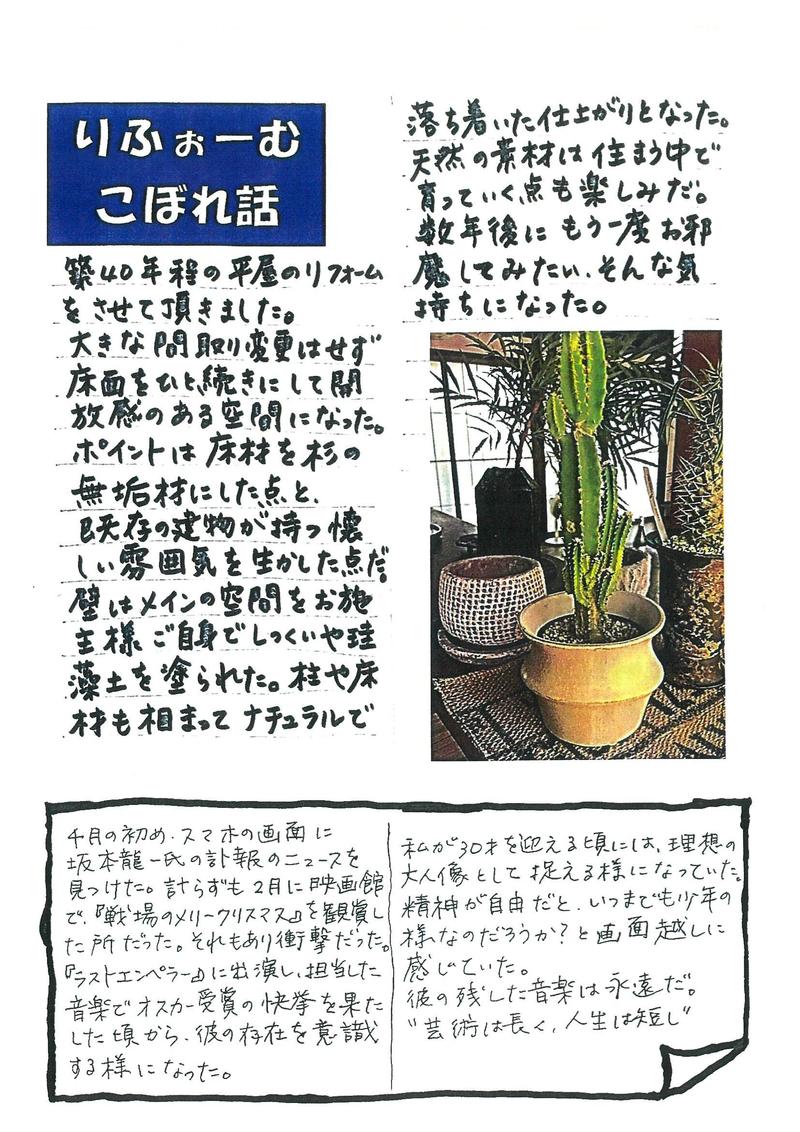 りふぉーむ
こぼれ話
築40年程の平屋のリフォーム
をさせて頂きました。
大きな間取り変更はせず
床面をひと続きにして開
放感のある空間になった。
ポイントは床材を杉の
無垢材にした点と、
既存の建物が持つ懐
しい雰囲気を生かした点だ。
壁はメインの空間をお施
主様ご自身でしっくいや珪
藻土を塗られた。柱や床
材も相まってナチュラルで
落ち着いた仕上がりとなった。
天然の素材は住まう中で
育っていく点も楽しみだ。
数年後にもう一度お邪
魔してみたい、そんな気
持ちになった。
4月の初め、スマホの画面に
坂本龍一氏の訃報のニュースを
見つけた。計らずも2月に映画館
で、『戦場のメリークリスマス』を観賞し
た所だった。それもあり衝撃だった。
『ラストエンペラー』に出演し、担当した
音楽でオスカー受賞の快挙を果た
した頃から、彼の存在を意識
する様になった。
私が30才を迎える頃には、理想の
大人像として捉える様になっていた。
精神が自由だと、いつまでも少年の
様なのだろうか?と画面越しに
感じていた。
彼の残した音楽は永遠だ。
"芸術は長く、人生は短し"